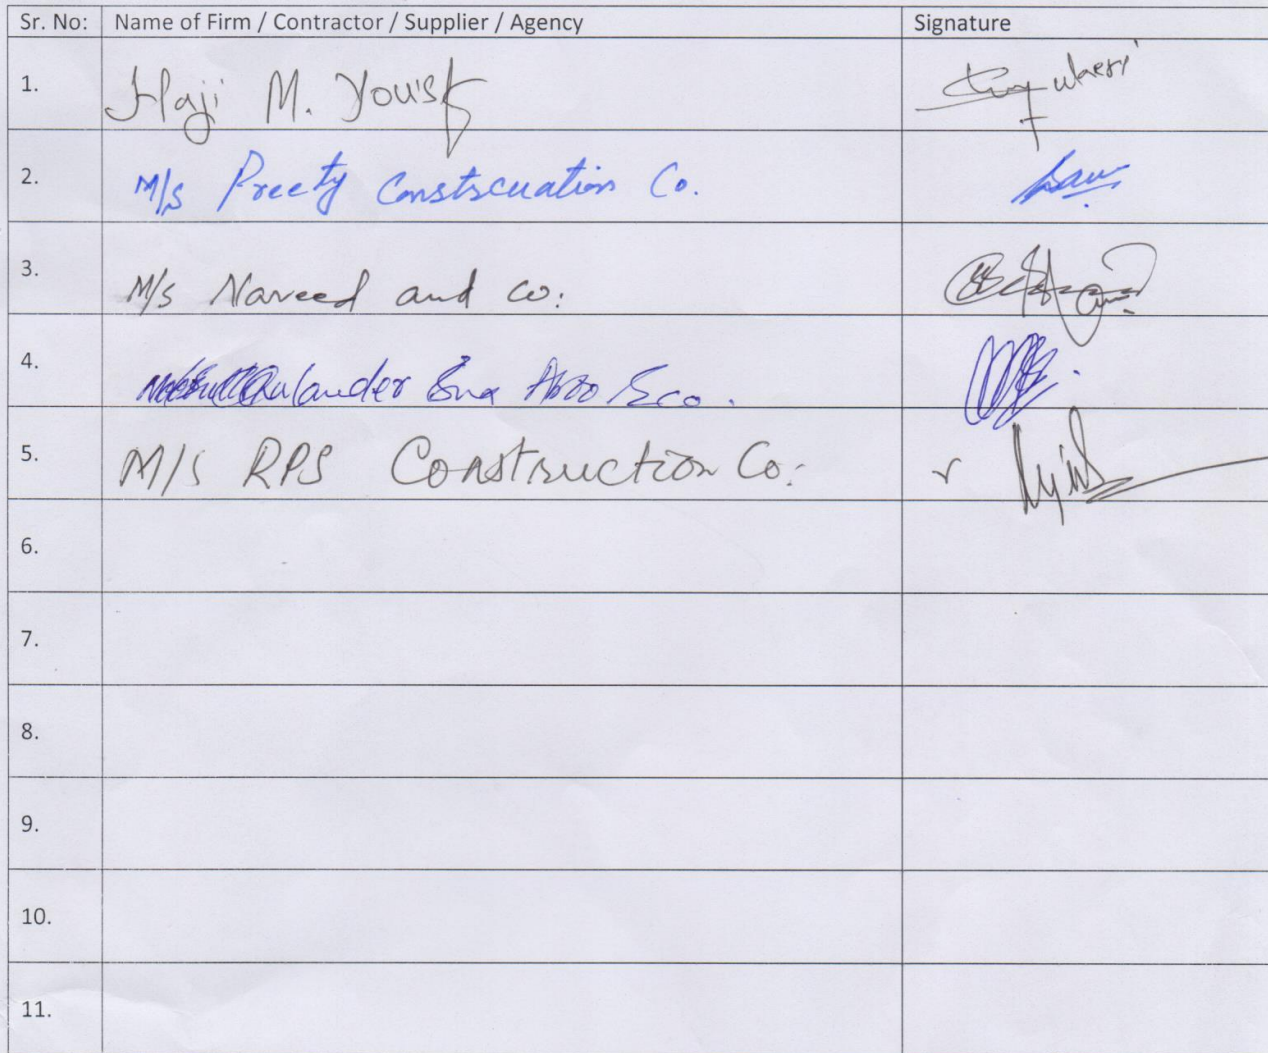 Sr. No: Name of Firm / Contractor / Supplier / Agency Signature
1. Haji M. Yousf
2. M/s Preety Constscuation Co.
3. M/s Naveed and co:
4. Qulander Bux Abro & co.
5. M/S RPS Construction Co:
6.
7.
8.
9.
10.
11.